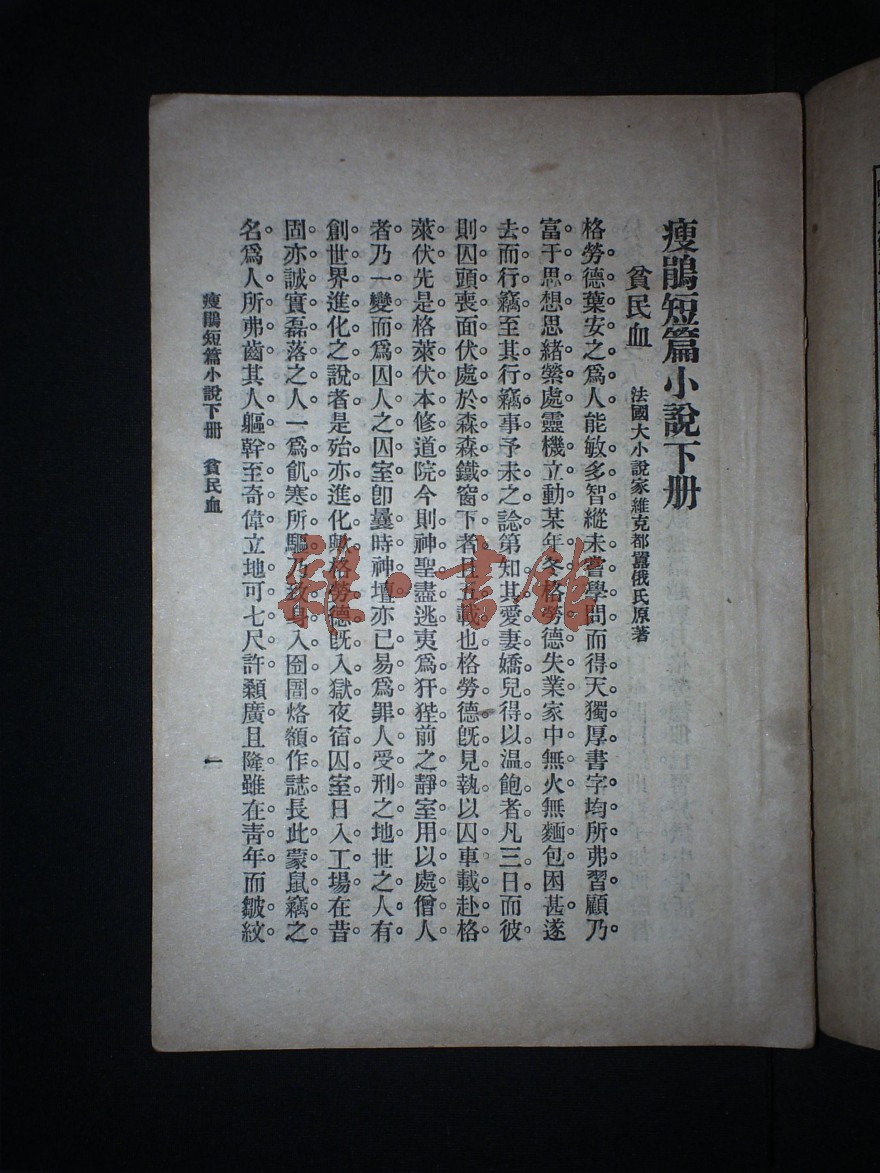 瘦鵑短篇小說下册
貧民血 法國大小說家維克都囂俄氏原著
格勞德葉安之爲人能敏多智縱未嘗學問而得天獨厚書字均所弗習顧乃
富于思想思緒縈處靈機立動某年冬格勞德失業家中無火無麵包困甚遂
去而行竊至其行竊事予未之諗第知其愛妻嬌兒得以温飽者凡三日而彼
則囚頭喪面伏處於森森鐵窗下者且五載也格勞德旣見執以囚車載赴格
萊伏先是格萊伏本修道院今則神聖盡逃夷爲犴狴前之靜室用以處僧人
者乃一變而爲囚人之囚室卽曩時神壇亦已易爲罪人受刑之地世之人有
創世界進化之說者是殆亦進化歟格勞德旣入獄夜宿囚室日入工場在昔
固亦誠實磊落之人一爲飢寒所驅乃致身入囹圄烙額作誌長此蒙鼠竊之
名爲人所弗齒其人軀幹至奇偉立地可七尺許顙廣且隆雖在靑年而皺紋
瘦鵑短篇小說下册 貧民血 一
雜·書館